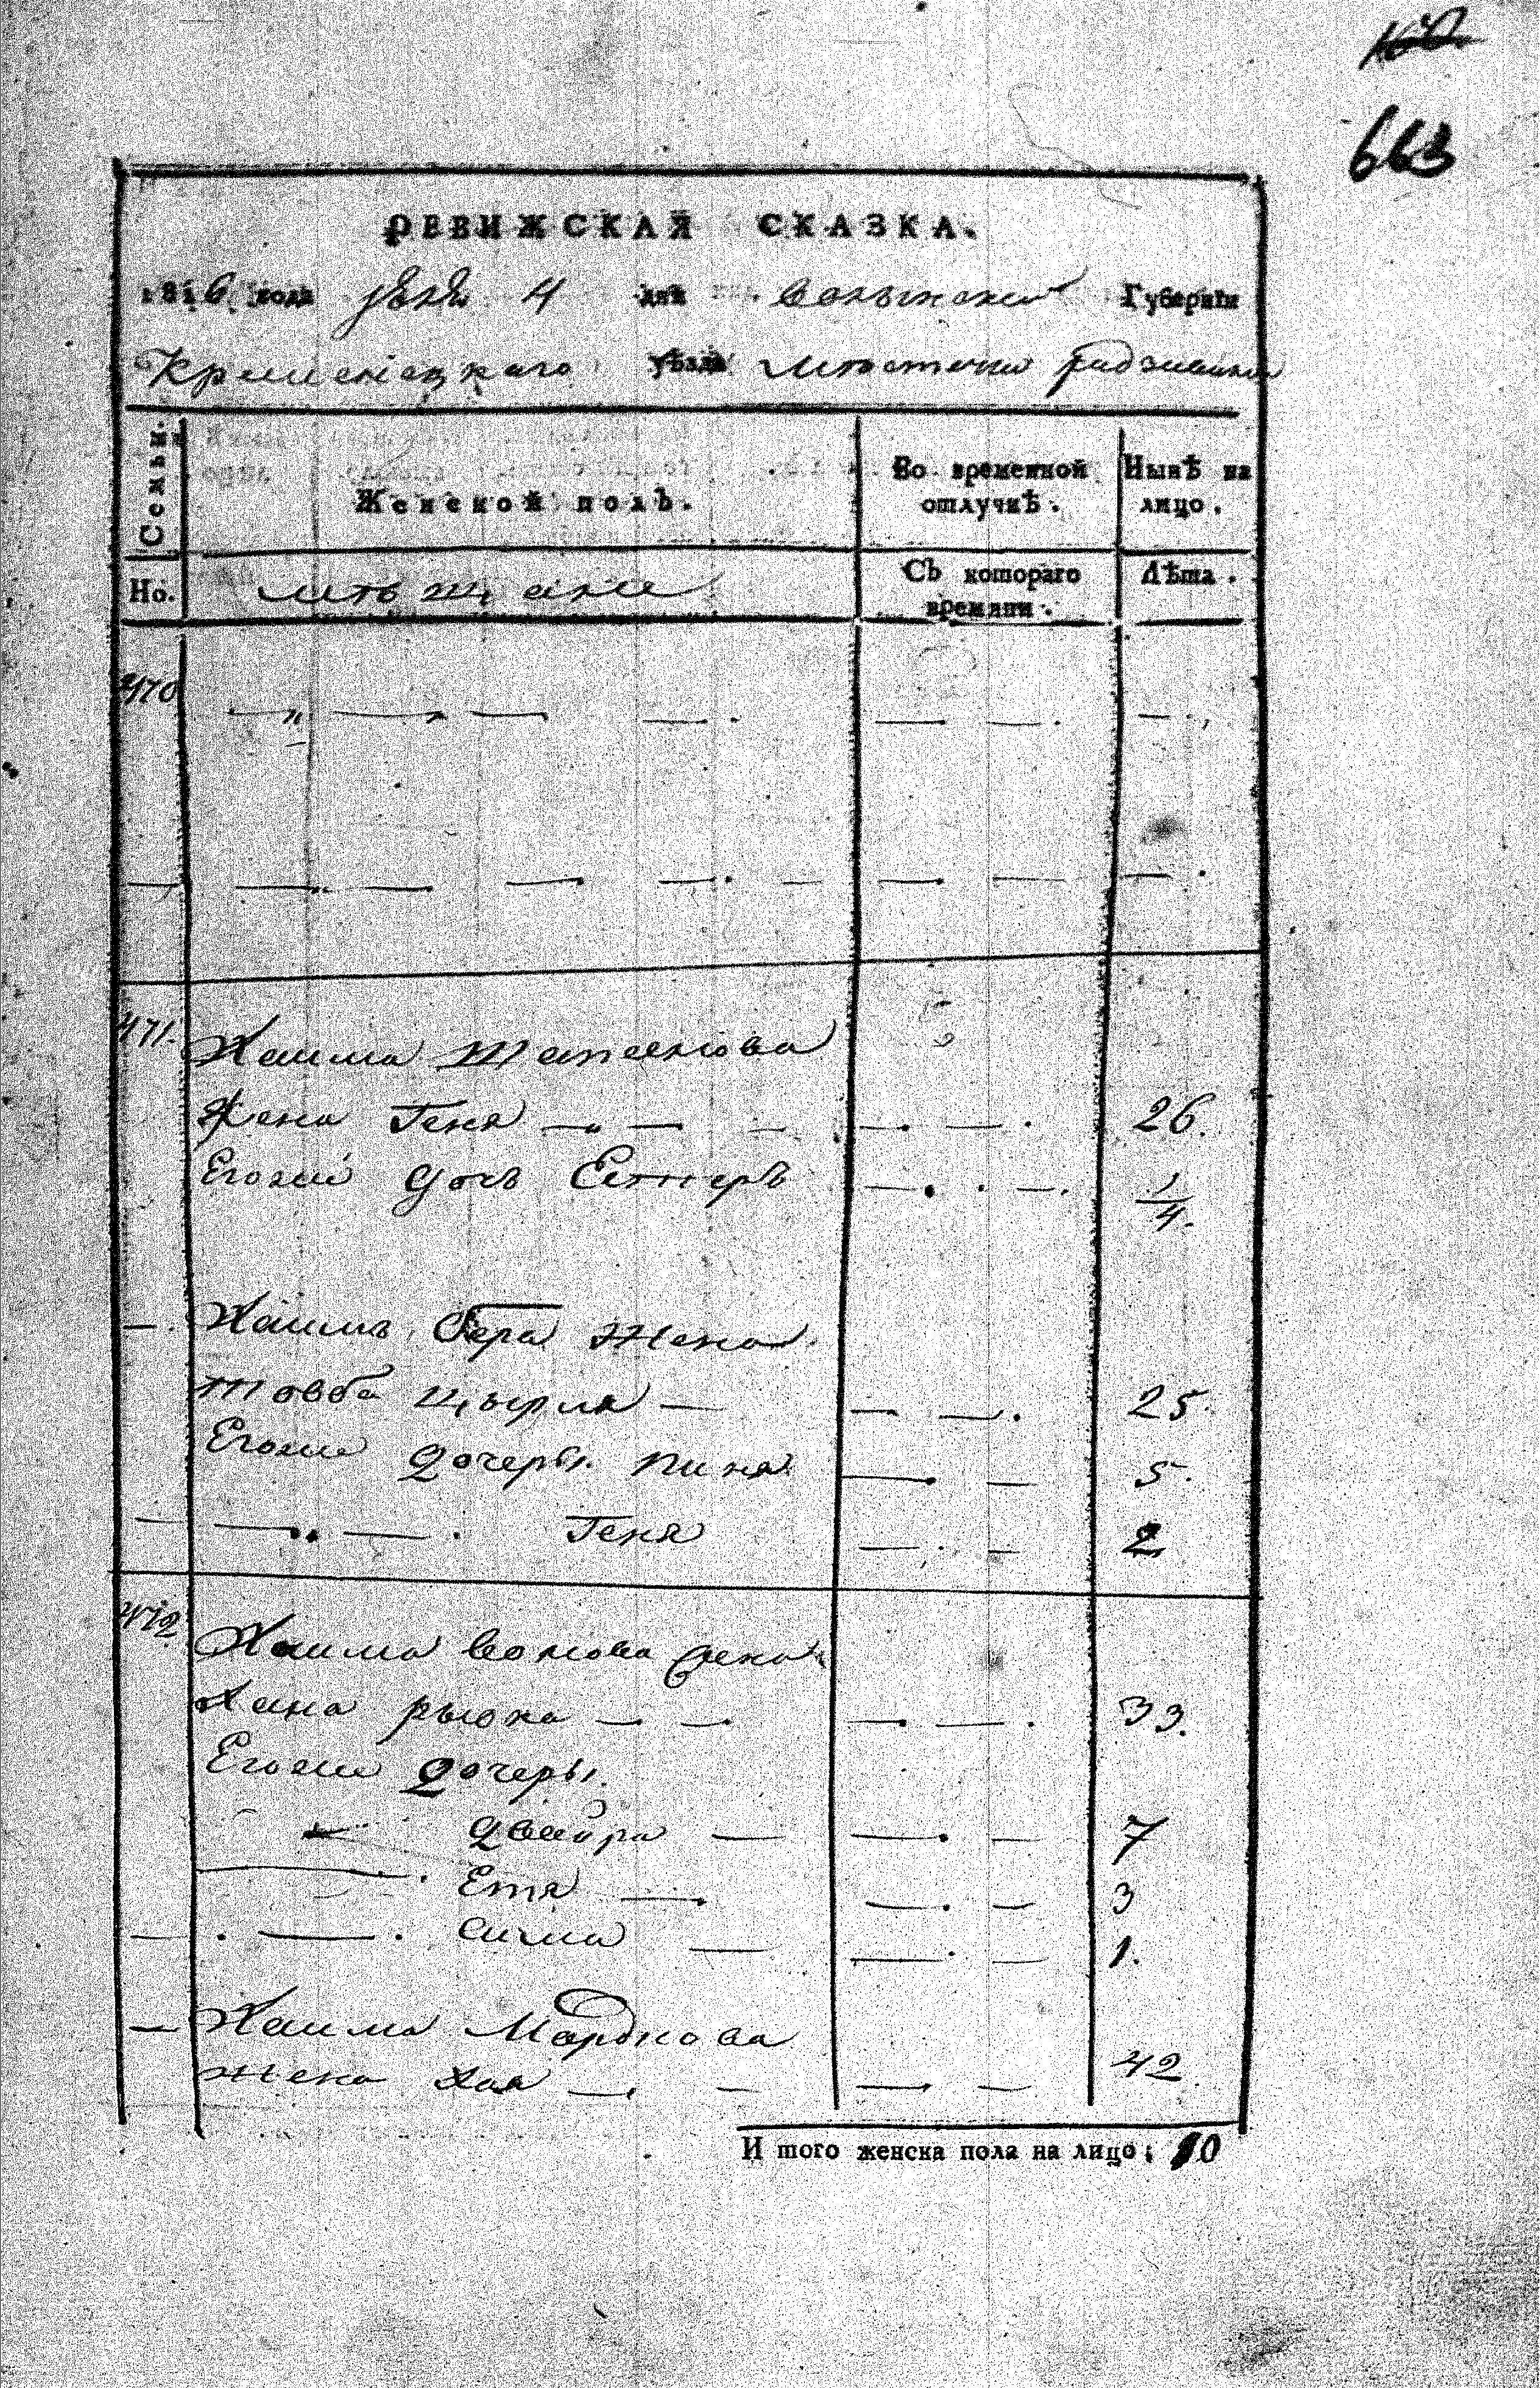 663
РЕВИЖСКАЯ СКАЗКА.
1816 года 4 дня Волынской Губерніи
Кременецкаго уѣзда местечка Радзивилова
Семьи.
Женской полъ.
Во временной отлучкѣ.
Нынѣ на лицо.
Но.
мещане
Съ котораго времяни.
Лѣта.
470
471.
Хаима
жена Геня 26.
Егоже дочь Естеръ 1/4.
Хаимъ Бера жена
Товба Цырля 25.
Егоже дочеры. Пиня 5.
Геня 2
472
Хаима Волова жена
Хана рыска 33.
Егоже дочеры.
двейра 7
Етя 3
Сима 1.
Хаима Мордкова
жена Хая 42
И того женска пола на лицо: 10